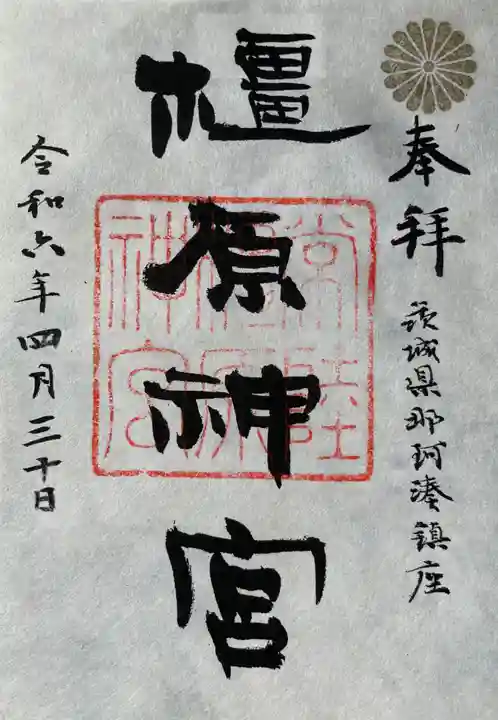 奉拝
茨城県那珂湊鎮座
橿原神宮
常陸
橿原
神宮
令和六年四月三十日